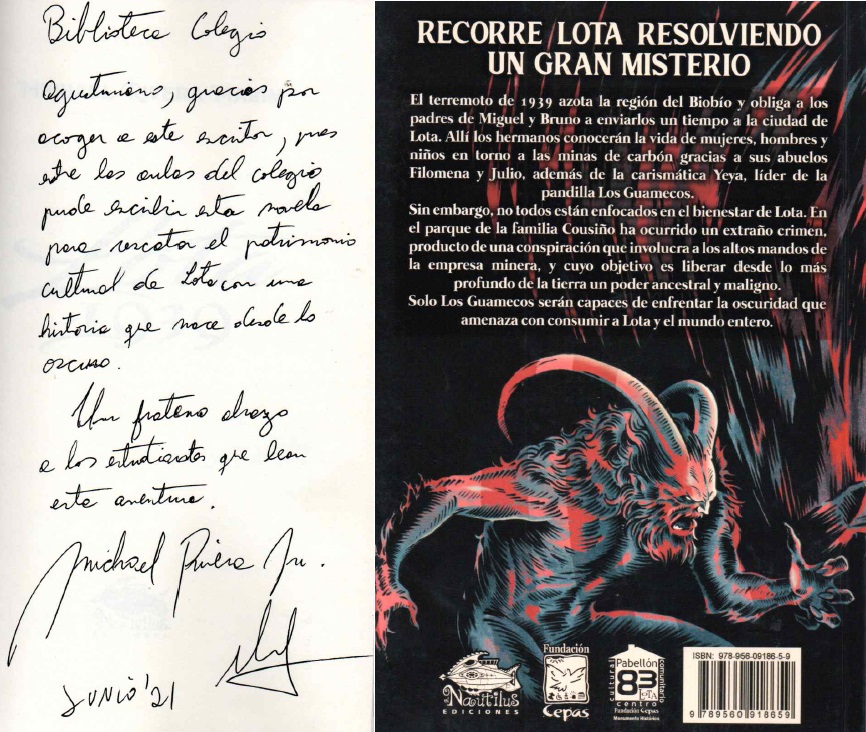 Biblioteca Colegio
Agustiniano, gracias por
acoger a este escritor, pues
entre las aulas del colegio
pude escribir esta novela
para rescatar el patrimonio
cultural de Lota con una
historia que nace desde lo
oscuro.
Un fraterno abrazo
a los estudiantes que lean
esta aventura.
Michael Rivera Jr.
JUNIO '21
RECORRE LOTA RESOLVIENDO
UN GRAN MISTERIO
El terremoto de 1939 azota la región del Biobío y obliga a los
padres de Miguel y Bruno a enviarlos un tiempo a la ciudad de
Lota. Allí los hermanos conocerán la vida de mujeres, hombres y
niños en torno a las minas de carbón gracias a sus abuelos
Filomena y Julio, además de la carismática Yeya, líder de la
pandilla Los Guamecos.
Sin embargo, no todos están enfocados en el bienestar de Lota. En
el parque de la familia Cousiño ha ocurrido un extraño crimen,
producto de una conspiración que involucra a los altos mandos de
la empresa minera, y cuyo objetivo es liberar desde lo más
profundo de la tierra un poder ancestral y maligno.
Solo Los Guamecos serán capaces de enfrentar la oscuridad que
amenaza con consumir a Lota y el mundo entero.
Nautilus
EDICIONES
Fundación
Cepas
cultural
Pabellón
83
LOTA
comunitario
centro
Fundación Cepas
Monumento Histórico
ISBN: 978-956-09186-5-9
9 789560 918659